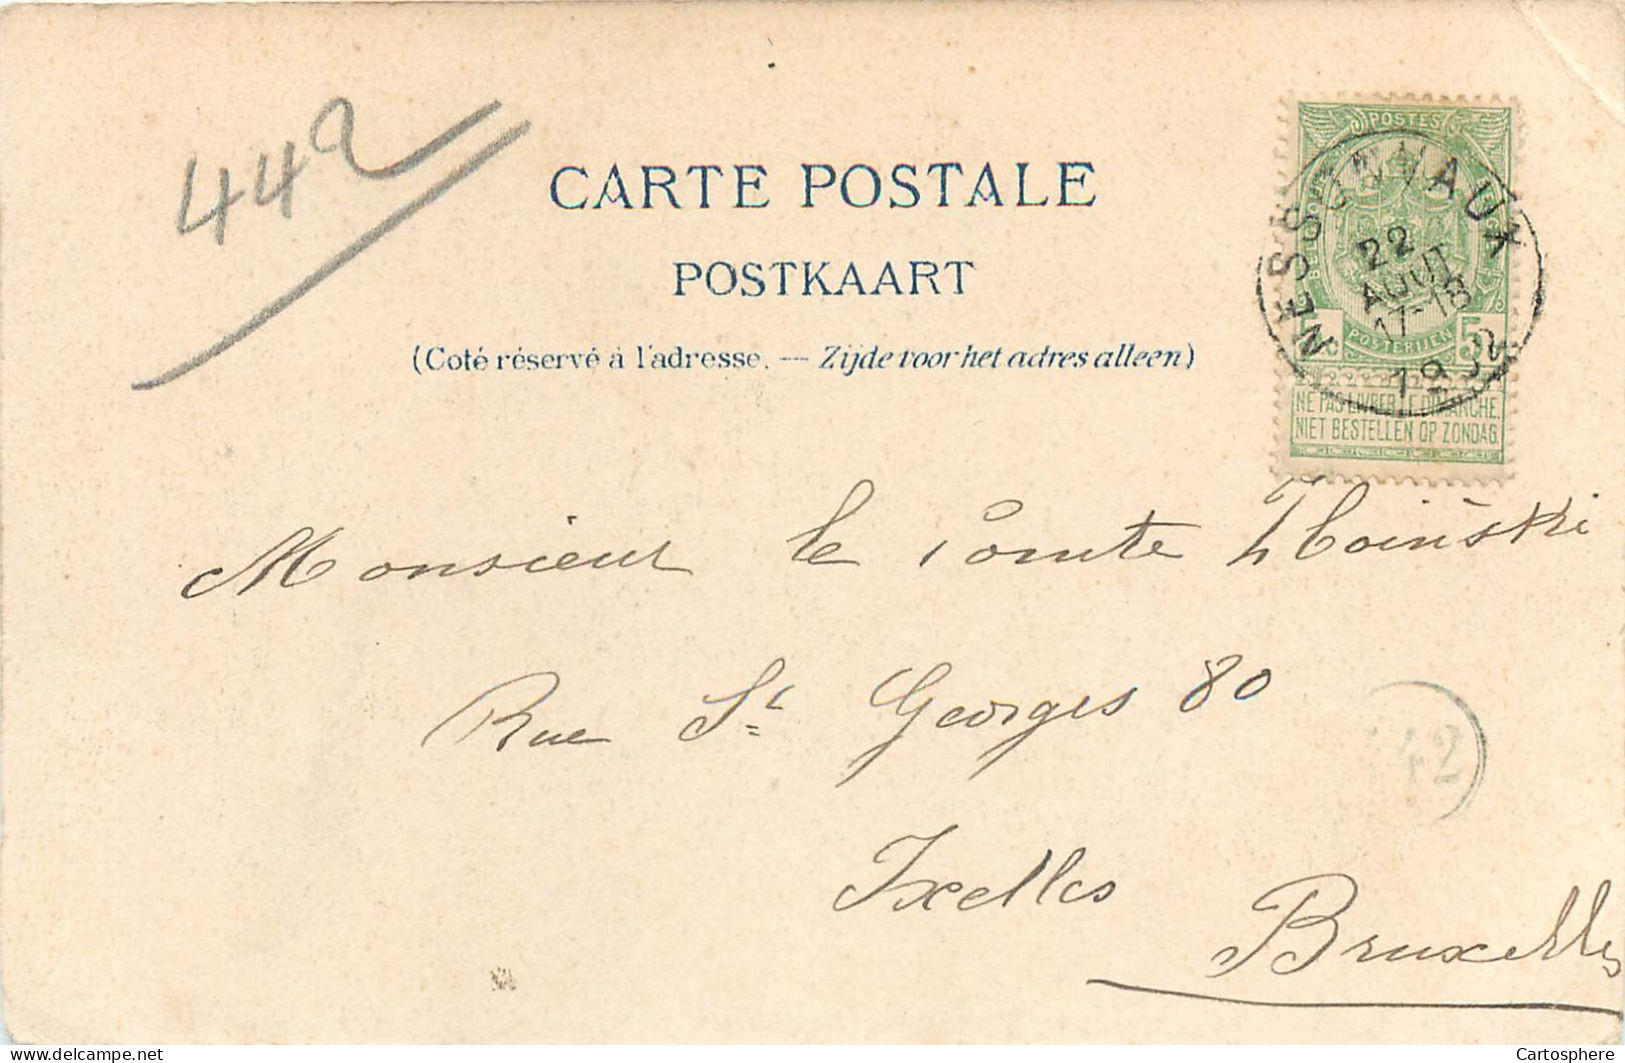 442
CARTE POSTALE
POSTKAART
(Coté réservé à l'adresse. — Zijde voor het adres alleen)
POSTES
NESSONVAUX
22
AOUT
17-18
190
c 5
POSTERIJEN
NE PAS LIVRER LE DIMANCHE.
NIET BESTELLEN OP ZONDAG.
Monsieur le Comte
Rue St Georges 80
442
Ixelles
Bruxelles
Cartosphere